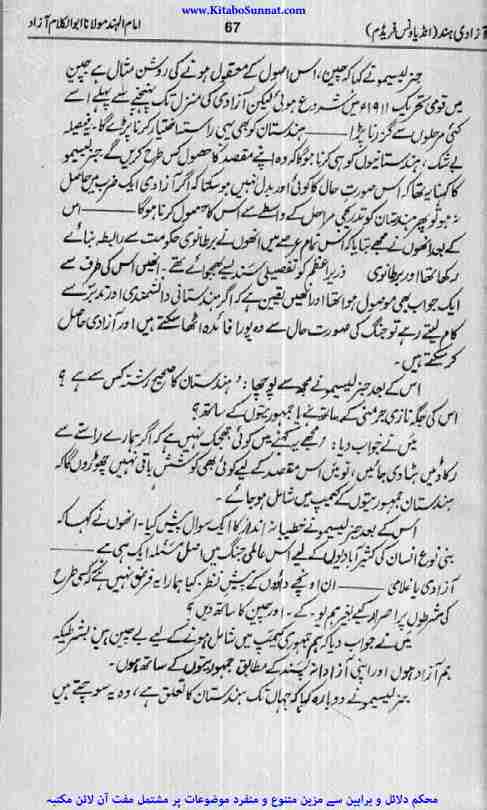 www.KitaboSunnat.com
آزادی ہند (انڈیا ونس فریڈم) 67 امام الہند مولانا ابوالکلام آزاد
جنرلیسیمو نے کہا کہ چین، اس اصول کے معقول ہونے کی روشن مثال ہے چین
میں قومی تحریک ۱۹۱۱ء میں شروع ہوئی لیکن آزادی کی منزل تک پہنچنے سے پہلے اسے
کئی مرحلوں سے گزرنا پڑا —— ہندستان کو بھی یہی راستہ اختیار کرنا پڑے گا۔ یہ فیصلہ
بے شک، ہندستانیوں کو ہی کرنا ہوگا کہ وہ اپنے مقصد کا حصول کس طرح کریں گے جنرلیسیمو
کا کہنا یہ تھا کہ اس صورتِ حال کا کوئی اور بدل نہیں ہو سکتا کہ اگر آزادی ایک ضرب میں حاصل
نہ ہو تو پھر ہندستان کو تدریجی مراحل کے واسطے سے اس کا حصول کرنا ہوگا —— اس
کے بعد انھوں نے مجھے بتایا کہ اس تمام عرصے میں انھوں نے برطانوی حکومت سے رابطہ بنائے
رکھا تھا اور برطانوی وزیرِ اعظم کو تفصیلی سندیسے بھجوائے تھے۔ انھیں اس کی طرف سے
ایک جواب بھی موصول ہوا تھا اور انھیں یقین ہے کہ اگر ہندستانی دانشمندی اور تدبر سے
کام لیتے رہے تو جنگ کی صورت حال سے وہ پورا فائدہ اٹھا سکتے ہیں اور آزادی حاصل
کر سکتے ہیں۔
اس کے بعد جنرلیسیمو نے مجھ سے پوچھا: ہندستان کا صحیح رشتہ کس سے ہے ؟
اس کی جگہ نازی جرمنی کے ساتھ ہے یا جمہوریتوں کے ساتھ؟
میں نے جواب دیا: مجھے یہ کہنے میں کوئی جھجک نہیں ہے کہ اگر ہمارے راستے سے
رکاوٹیں ہٹا دی جائیں، تو میں اس مقصد کے لیے کوئی بھی کوشش باقی نہیں چھوڑوں گا کہ
ہندستان جمہوریتوں کے کیمپ میں شامل ہو جائے۔
اس کے بعد جنرلیسیمو نے خطیبانہ انداز کا ایک سوال پیش کیا۔ انھوں نے کہا کہ
بنی نوع انسان کی کثیر آبادیوں کے لیے اس عالمی جنگ میں اصل مسئلہ ایک ہی ہے ——
آزادی یا غلامی —— ان اونچے داؤں کے پیش نظر، کیا ہمارا یہ فرض نہیں ہے کہ کسی طرح
کی شرطوں پر اصرار کیے بغیر ہم یو۔ کے۔ اور چین کا ساتھ دیں؟
میں نے جواب دیا کہ ہم جمہوری کیمپ میں شامل ہونے کے لیے بے چین ہیں بشرطیکہ
ہم آزاد ہوں اور اپنی آزادانہ پسند کے مطابق جمہوریتوں کے ساتھ ہوں۔
جنرلیسیمو نے دوبارہ کہا کہ جہاں تک ہندستان کا تعلق ہے، وہ یہ سوچتے ہیں
محکم دلائل و براہین سے مزین متنوع و منفرد موضوعات پر مشتمل مفت آن لائن مکتبہ